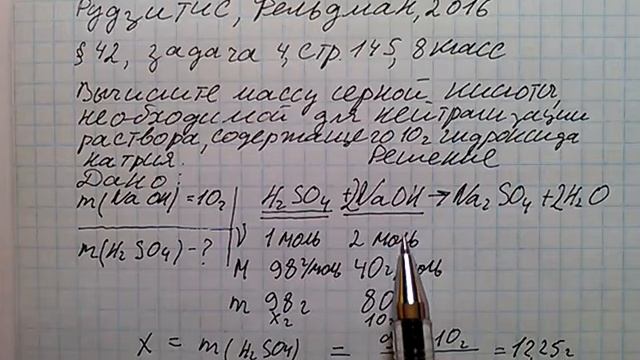 Рудзитис, Фельдман, 2016
§ 42, задача 4, стр. 145, 8 класс
Вычислите массу серной кислоты,
необходимой для нейтрализации
раствора, содержащего 10г гидроксида
натрия. Решение
Дано:
m(NaOH) = 10г H₂SO₄ + 2NaOH → Na₂SO₄ + 2H₂O
m(H₂SO₄) - ? ν 1 моль 2 моль
M 98г/моль 40г/моль
m 98г 80
xг 10
X = m(H₂SO₄) = 10г = 12,25г